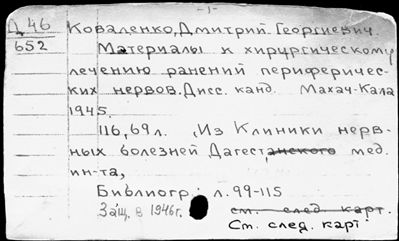 -1-
Д 46
652
Коваленко, Дмитрий Георгиевич.
Материалы к хирургическому
лечению ранений периферичес-
ких нервов. Дисс. канд. Махач-Кала
1945.
116,69л. Из Клиники нерв-
ных болезней Дагестанского мед.
ин-та,
Библиогр: л.99-115
Защ. в 1946г.
см. след. карт.
См. след. карт